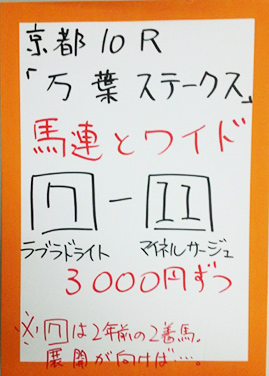 京都10R
「万葉ステークス」
馬連とワイド
7-11
ラブラドライト マイネルサージュ
3000円ずつ
※7は2年前の2着馬。
展開が向けば…。